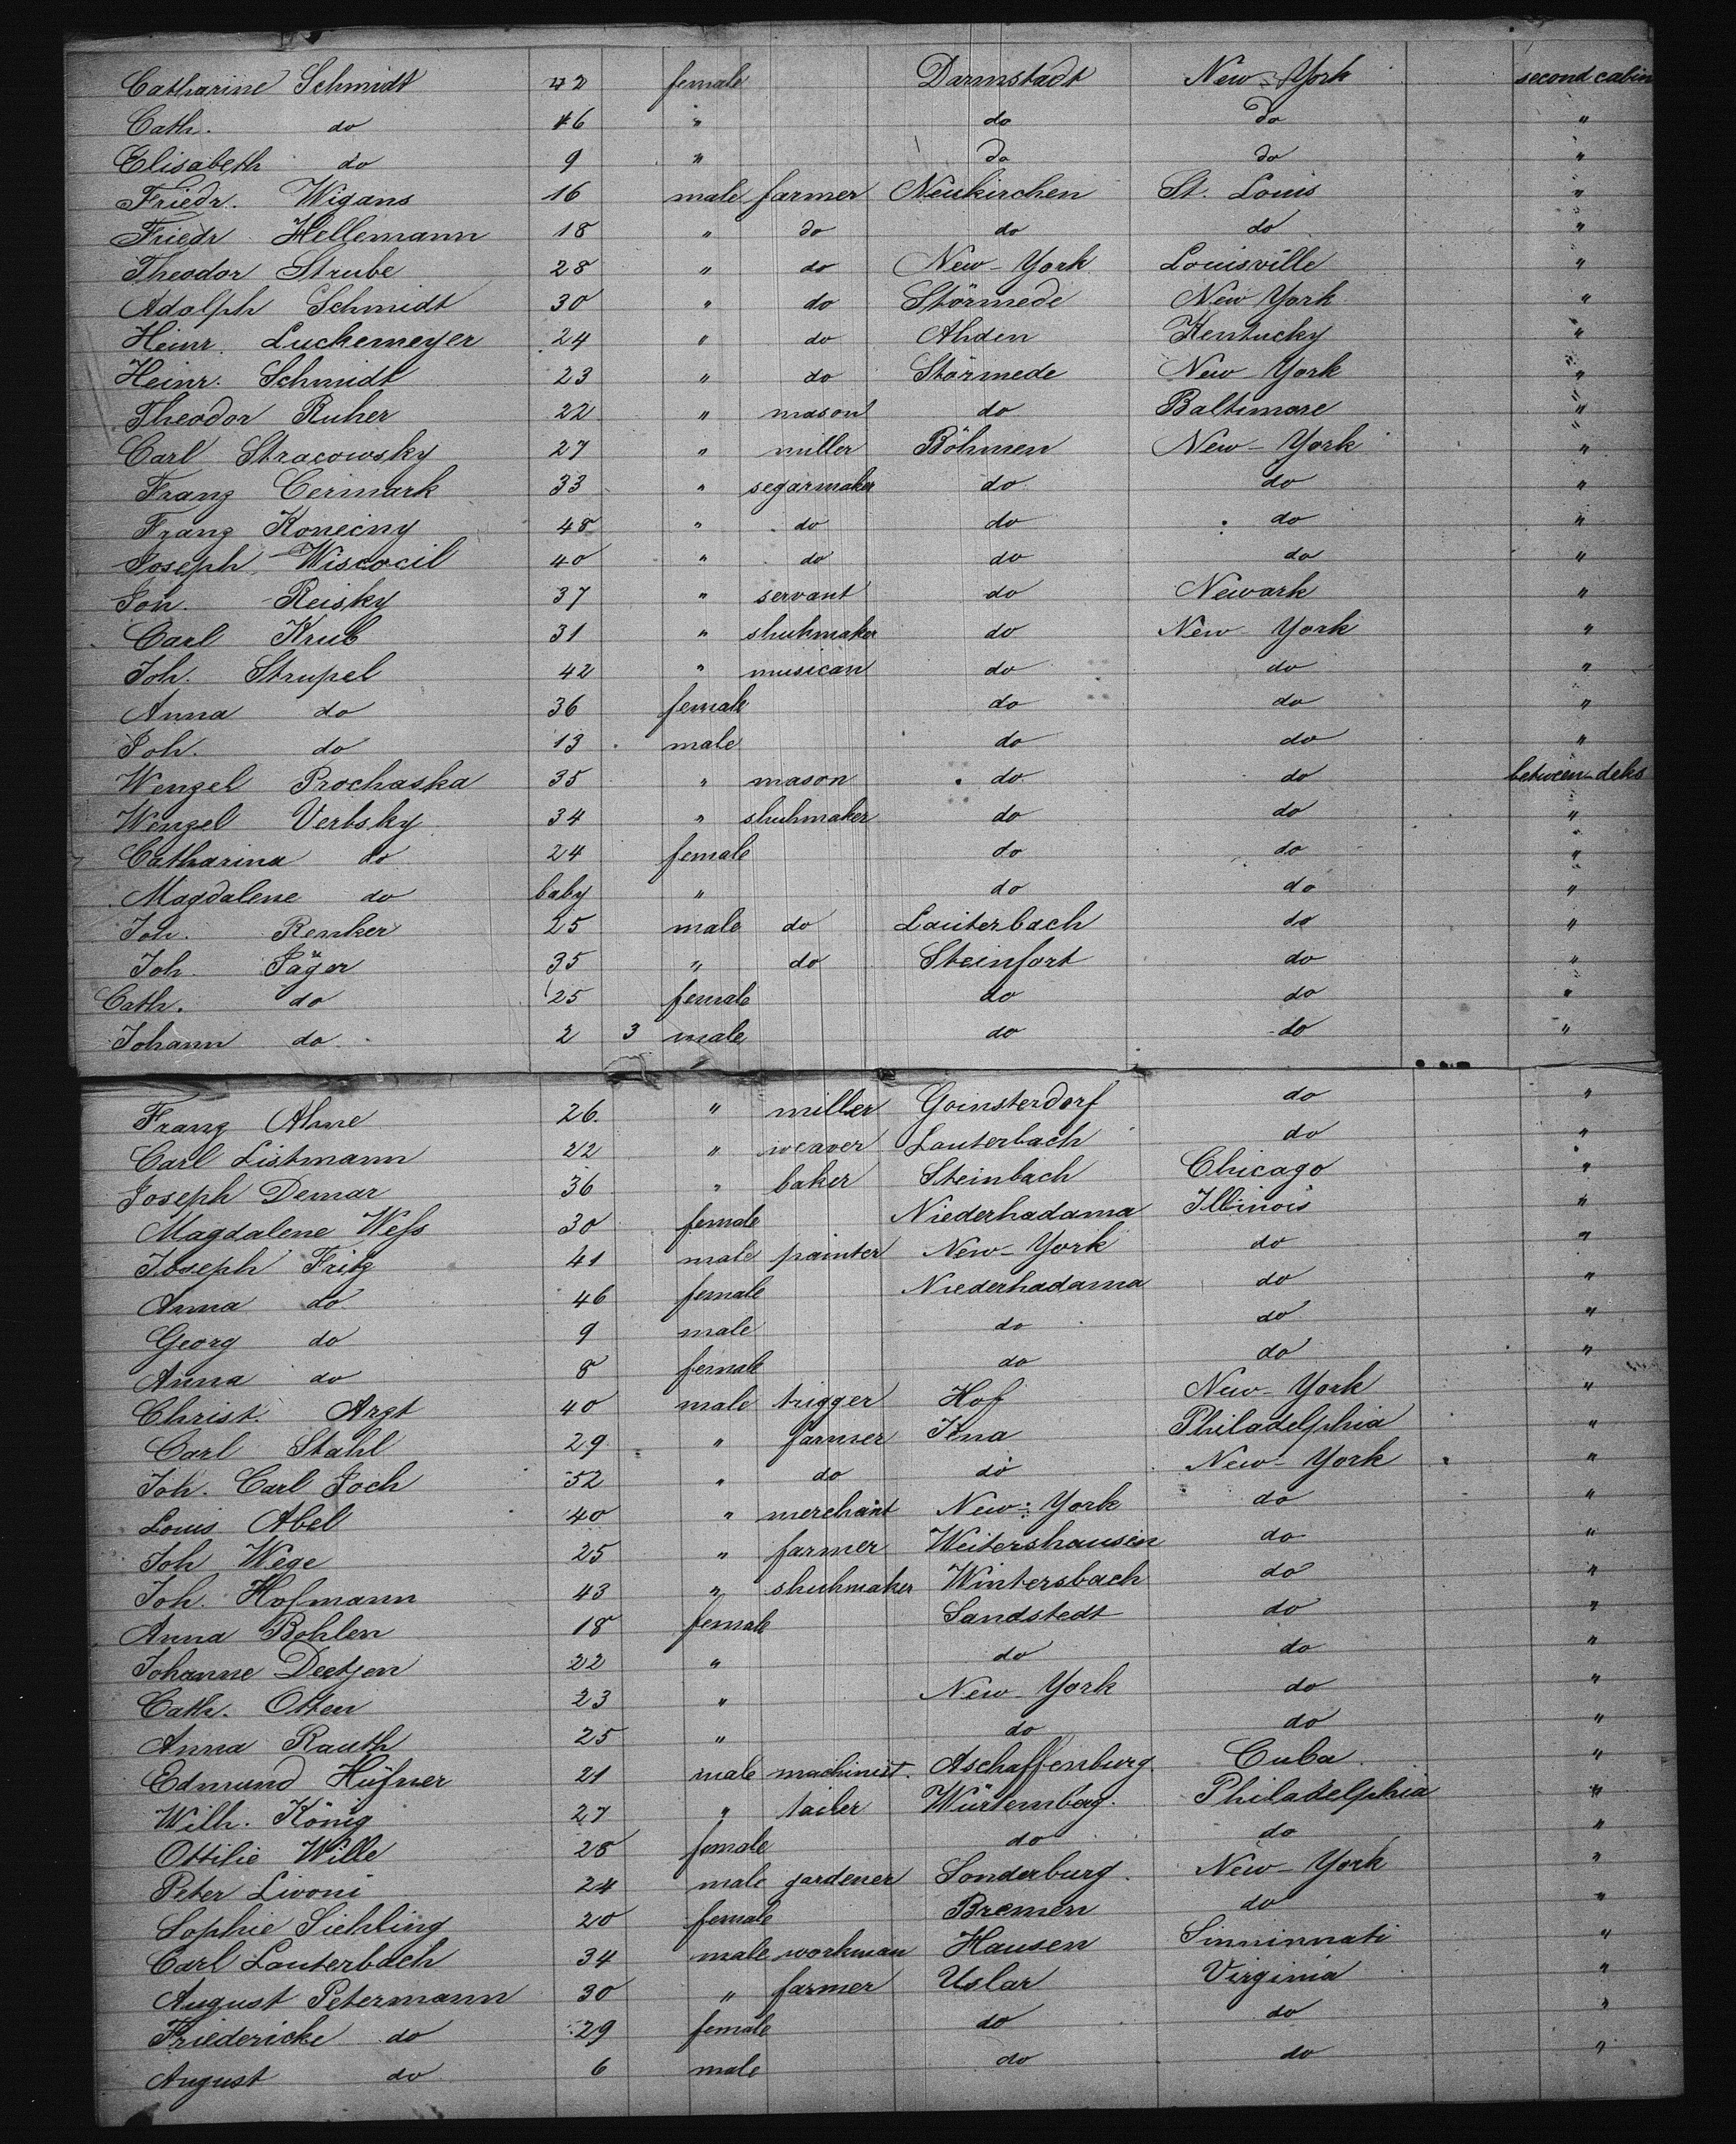 Catharine Schmidt 42 female Darmstadt New-York second cabin
Cath. do 16 " do do "
Elisabeth do 9 " do do "
Friedr. Wigans 16 male farmer Neukirchen St. Louis "
Friedr Hellemann 18 " do do do "
Theodor Strube 28 " do New-York Louisville "
Adolph Schmidt 30 " do Störmede New York "
Heinr. Luckemeyer 24 " do Ahden Kentucky "
Heinr. Schmidt 23 " do Störmede New-York "
Theodor Ruher 22 " mason do Baltimore "
Carl Stracowsky 27 " miller Böhmen New-York "
Franz Cermark 33 " segarmaker do do "
Franz Konecny 48 " do do do "
Joseph Wiscocil 40 " do do do "
Joh. Reisky 37 " servant do Newark "
Carl Krub 31 " shuhmaker do New-York "
Joh. Strupel 42 " musican do do "
Anna do 36 female do do "
Joh. do 13 male do do "
Wenzel Prochaska 35 " mason do do between-deks
Wenzel Verbsky 34 " shuhmaker do do "
Catharina do 24 female do do "
Magdalene do baby " do do "
Joh. Renker 25 male do Lauterbach do "
Joh. Jäger 35 " do Steinfort do "
Cath. do 25 female do do "
Johann do 2 3 male do do "
Franz Ahne 26. " miller Goinsterdorf do "
Carl Listmann 22 " weaver Lauterbach do "
Joseph Demar 36 " baker Steinbach Chicago "
Magdalene Weſs 30 female Niederhadama Illinois "
Joseph Fritz 41 male painter New-York do "
Anna do 46 female Niederhadama do "
Georg do 9 male do do "
Anna do 8 female do do "
Christ. Arzt 40 male trigger Hof New-York "
Carl Stahl 29 " farmer Jena Philadelphia "
Joh. Carl Joch 52 " do do New-York "
Louis Abel 40 " merchant New-York do "
Joh Wege 25 " farmer Weitershausen do "
Joh. Hofmann 43 " shuhmaker Wintersbach do "
Anna Bohlen 18 female Sandstedt do "
Johanne Deetjen 22 " do do "
Cath. Otten 23 " New-York do "
Anna Rauth 25 " do do "
Edmund Hüfner 21 male machinist. Aschaffenburg Cuba "
Wilh. König 27 " tailer Würtemberg. Philadelphia "
Ottilie Wille 28 female do do "
Peter Livoni 24 male gardener Sonderburg. New-York "
Sophie Siehling 20 female Bremen do "
Carl Lauterbach 34 male workman Hausen Sinninnati "
August Petermann 30 " farmer Uslar Virginia "
Friedericke do 29 female do do "
August do 6 male do do "